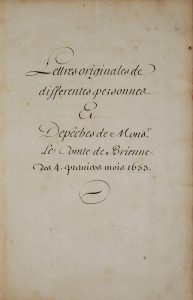 Lettres originales de
differentes personnes
Et
Depêches de Monsr.
Le Comte de Brienne
des 4. premiers mois 1653.